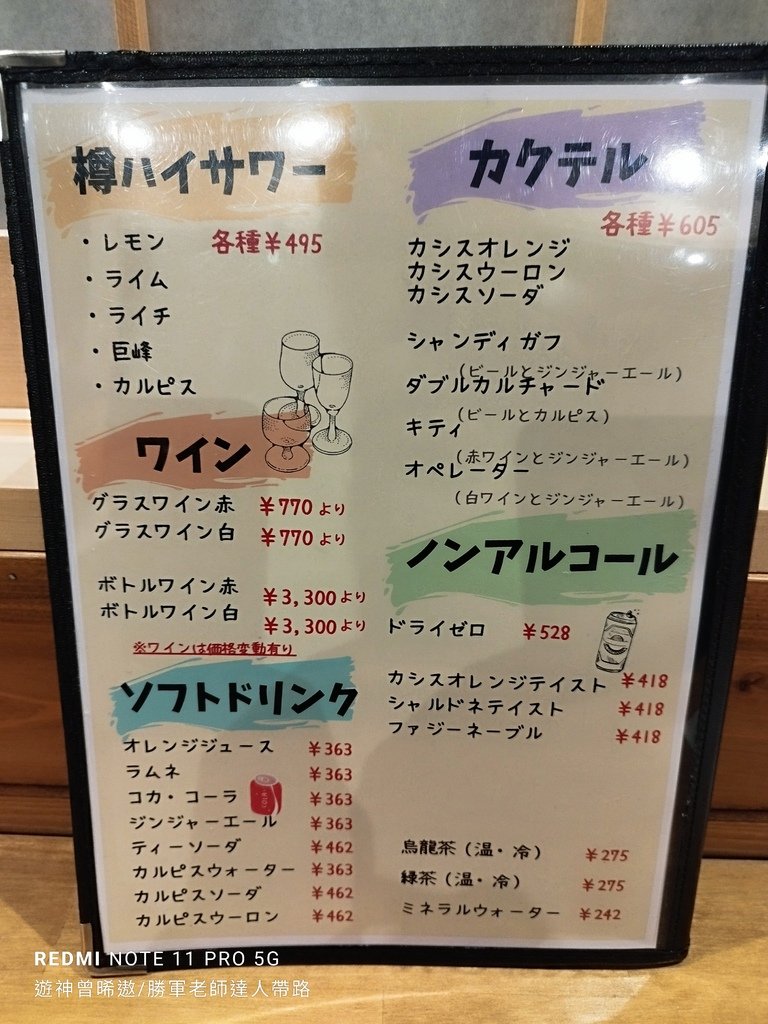 樽ハイサワー
・レモン 各種¥495
・ライム
・ライチ
・巨峰
・カルピス
ワイン
グラスワイン赤 ¥770より
グラスワイン白 ¥770より
ボトルワイン赤 ¥3,300より
ボトルワイン白 ¥3,300より
※ワインは価格変動有り
ソフトドリンク
オレンジジュース ¥363
ラムネ ¥363
コカ・コーラ ¥363
ジンジャーエール ¥363
ティーソーダ ¥462
カルピスウォーター ¥363
カルピスソーダ ¥462
カルピスウーロン ¥462
カクテル
各種¥605
カシスオレンジ
カシスウーロン
カシスソーダ
シャンディガフ
(ビールとジンジャーエール)
ダブルカルチャード
(ビールとカルピス)
キティ
(赤ワインとジンジャーエール)
オペレーター
(白ワインとジンジャーエール)
ノンアルコール
ドライゼロ ¥528
カシスオレンジテイスト ¥418
シャルドネテイスト ¥418
ファジーネーブル ¥418
烏龍茶(温・冷) ¥275
緑茶(温・冷) ¥275
ミネラルウォーター ¥242
REDMI NOTE 11 PRO 5G
遊神曾晞遨/勝軍老師達人帶路